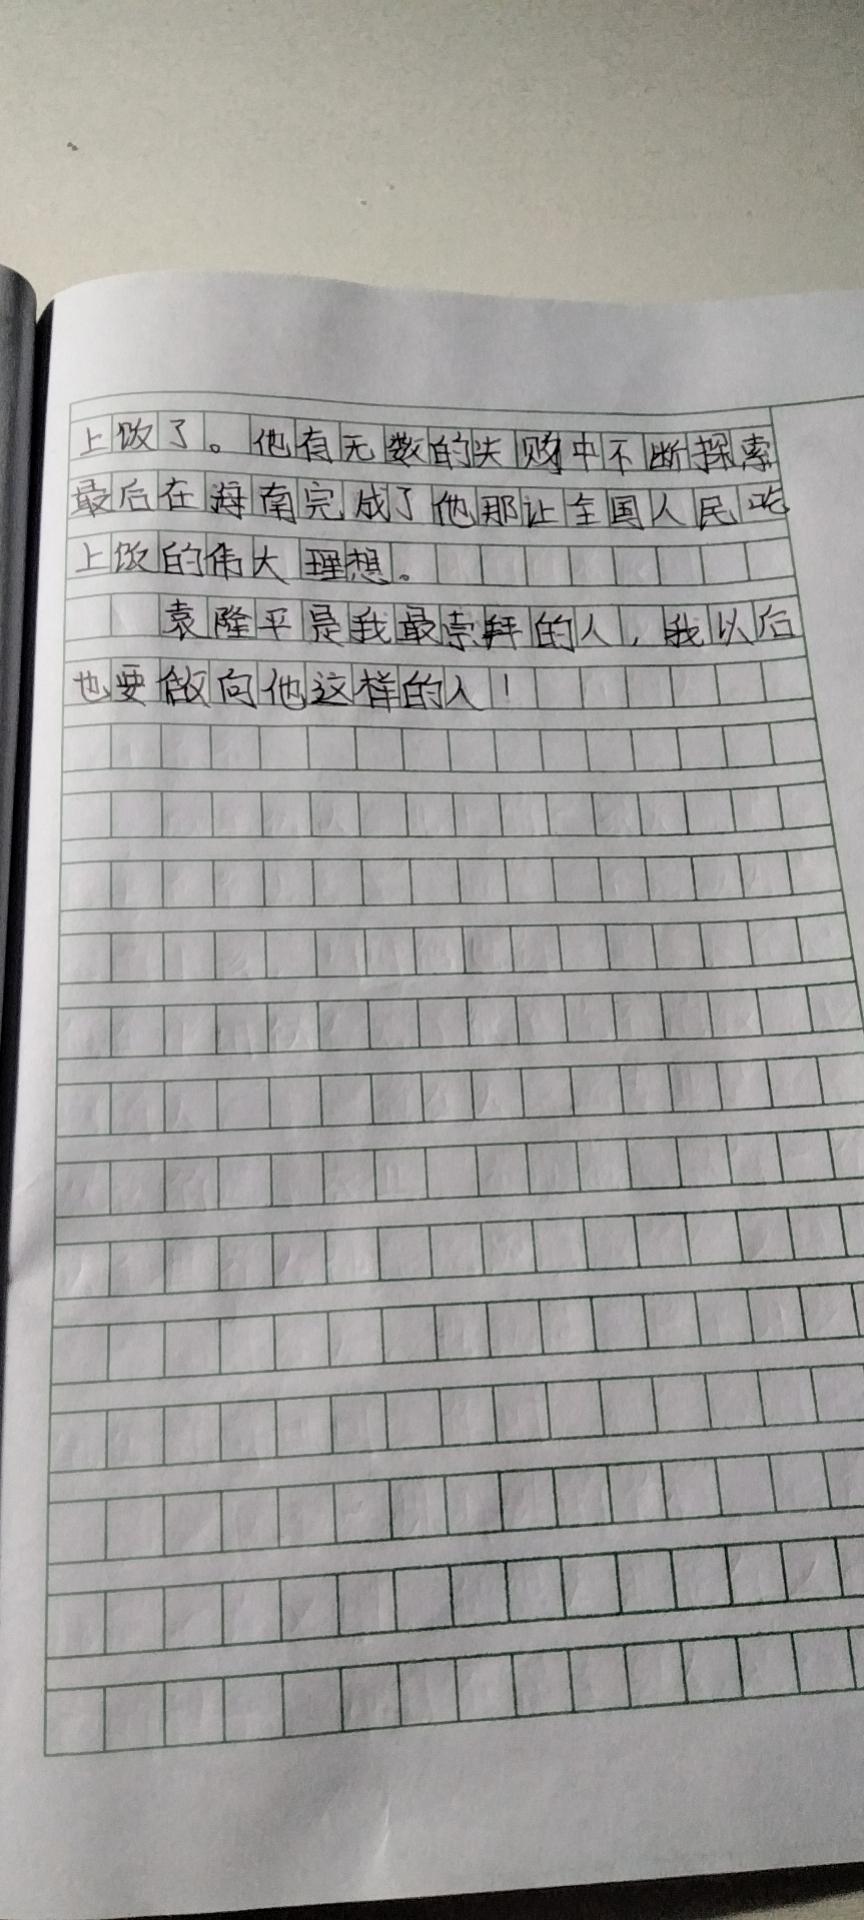 上饭了。他有无数的失败中不断探索
最后在海南完成了他那让全国人民吃
上饭的伟大理想。
袁隆平是我最崇拜的人，我以后
也要做向他这样的人！